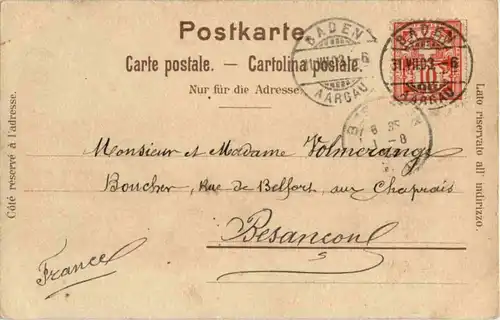 Postkarte.
Carte postale. — Cartolina postale.
Nur für die Adresse.
BADEN
31.VII.03. 6
AARGAU
BADEN
31.VII.03. 6
AARGAU
10
Côté réservé à l'adresse.
Lato riservato all' indirizzo.
Monsieur et Madame Volmerange
Boucher, Rue de Belfort, aux Chaprais
Besançon
France